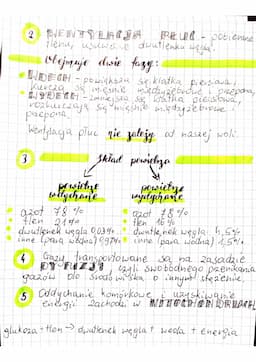 2 WENTYLACJA PŁUC - pobieranie
tlenu, usuwanie dwutlenku węgla.
Obejmuje dwie fazy:
WDECH - powiększa się klatka piersiowa,
kurczą się mięśnie międzyżebrowe i przepona,
WYDECH - zmniejsza się klatka piersiowa,
rozkurczają się mięśnie międzyżebrowe i
przepona.
Wentylacja płuc nie zależy od naszej woli.
3 Skład powietrza
powietrze powietrze
wdychane wydychane
azot 78% azot 78%
tlen 21% tlen 16%
dwutlenek węgla 0,03% dwutlenek węgla 4,5%
inne (para wodna) 0,97% inne (para wodna) 1,5%
4 Gazy transportowane są na zasadzie
DYFUZJI, czyli swobodnego przenikania
gazów do środowiska o innym stężeniu.
5 Oddychanie komórkowe i uzyskiwanie
energii zachodzi w MITOCHONDRIACH
glukoza + tlen → dwutlenek węgla + woda + energia